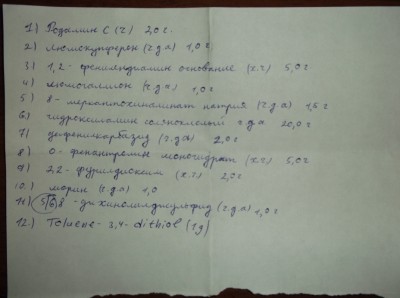 1) Родамин С (ч) 2,0 г.
2) люмокупферон (ч.д.а) 1,0 г
3) 1,2 - фенилендиамин основание (х.ч) 5,0 г
4) люмогаллион (ч.д.а) 1,0 г
5) 8 - меркаптохинолинат натрия (ч.д.а) 1,5 г
6) гидроксиламин солянокислый ч.д.а 20,0 г
7) дифенилкарбазид (ч.д.а) 2,0 г
8) о - фенантролин моногидрат (х.ч) 5,0 г
9) 2,2 - фурилдиоксим (х.ч) 2,0 г
10) морин (ч.д.а) 1,0
11) 8 - дихинолилдисульфид (ч.д.а) 1,0 г
12) Toluene - 3,4 - dithiol (1g)